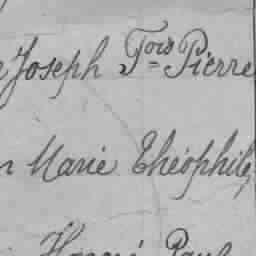 Joseph Fois= Pierre
Marie Théophile
Honoré Paul